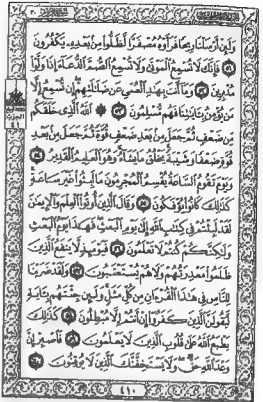 وَلَئِنْ أَرْسَلْنَا رِيحًا فَرَأَوْهُ مُصْفَرًّا لَّظَلُّوا۟ مِنۢ بَعْدِهِۦ يَكْفُرُونَ
٥١ فَإِنَّكَ لَا تُسْمِعُ ٱلْمَوْتَىٰ وَلَا تُسْمِعُ ٱلصُّمَّ ٱلدُّعَآءَ إِذَا وَلَّوْا۟
مُدْبِرِينَ ٥٢ وَمَآ أَنتَ بِهَٰدِ ٱلْعُمْىِ عَن ضَلَٰلَتِهِمْ إِن تُسْمِعُ إِلَّا
مَن يُؤْمِنُ بِـَٔايَٰتِنَا فَهُم مُّسْلِمُونَ ٥٣ ۞ ٱللَّهُ ٱلَّذِى خَلَقَكُم
مِّن ضَعْفٍ ثُمَّ جَعَلَ مِنۢ بَعْدِ ضَعْفٍ قُوَّةً ثُمَّ جَعَلَ مِنۢ بَعْدِ
قُوَّةٍ ضَعْفًا وَشَيْبَةً يَخْلُقُ مَا يَشَآءُ وَهُوَ ٱلْعَلِيمُ ٱلْقَدِيرُ ٥٤
وَيَوْمَ تَقُومُ ٱلسَّاعَةُ يُقْسِمُ ٱلْمُجْرِمُونَ مَا لَبِثُوا۟ غَيْرَ سَاعَةٍ
كَذَٰلِكَ كَانُوا۟ يُؤْفَكُونَ ٥٥ وَقَالَ ٱلَّذِينَ أُوتُوا۟ ٱلْعِلْمَ وَٱلْإِيمَٰنَ
لَقَدْ لَبِثْتُمْ فِى كِتَٰبِ ٱللَّهِ إِلَىٰ يَوْمِ ٱلْبَعْثِ فَهَٰذَا يَوْمُ ٱلْبَعْثِ
وَلَٰكِنَّكُمْ كُنتُمْ لَا تَعْلَمُونَ ٥٦ فَيَوْمَئِذٍ لَّا يَنفَعُ ٱلَّذِينَ
ظَلَمُوا۟ مَعْذِرَتُهُمْ وَلَا هُمْ يُسْتَعْتَبُونَ ٥٧ وَلَقَدْ ضَرَبْنَا
لِلنَّاسِ فِى هَٰذَا ٱلْقُرْءَانِ مِن كُلِّ مَثَلٍ وَلَئِن جِئْتَهُم بِـَٔايَةٍ
لَّيَقُولَنَّ ٱلَّذِينَ كَفَرُوٓا۟ إِنْ أَنتُمْ إِلَّا مُبْطِلُونَ ٥٨ كَذَٰلِكَ
يَطْبَعُ ٱللَّهُ عَلَىٰ قُلُوبِ ٱلَّذِينَ لَا يَعْلَمُونَ ٥٩ فَٱصْبِرْ إِنَّ
وَعْدَ ٱللَّهِ حَقٌّ وَلَا يَسْتَخِفَّنَّكَ ٱلَّذِينَ لَا يُوقِنُونَ ٦٠
٤١٠